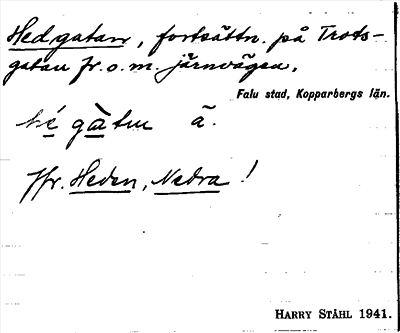 Hedgatan, fortsättn. på Trots-
gatan fr. o. m. järnvägen.
Falu stad, Kopparbergs län.
hé gàtṇ ä.
Jfr. Heden, Nedra!
HARRY STÅHL 1941.